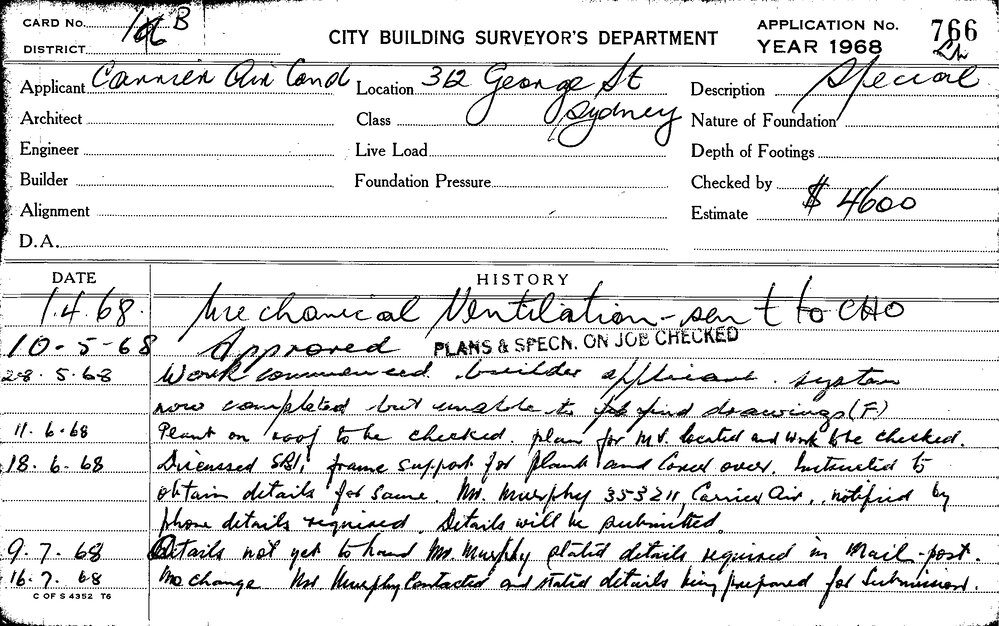 CARD No. B
DISTRICT
CITY BUILDING SURVEYOR'S DEPARTMENT
APPLICATION No. 766
YEAR 1968
Applicant Carrier Air Cond
Location 312 George St
Sydney
Description Special
Architect
Class
Nature of Foundation
Engineer
Live Load
Depth of Footings
Builder
Foundation Pressure
Checked by
Alignment
Estimate $4600
D.A.
DATE HISTORY
1.4.68. Mechanical Ventilation - sent to CHO
10-5-68 Approved PLANS & SPECN. ON JOB CHECKED
28.5.68 Work commenced. builder applicant. system
now completed but unable to find drawings (F)
11.6.68 Plant on roof to be checked. plan for M.V. located and work to be checked.
18.6.68 Discussed frame support for plant and cover over. Instructed to
obtain details for same. Mr. Murphy 353211 Carrier Air, notified by
phone details required. Details will be submitted.
9.7.68 Details not yet to hand Mr. Murphy stated details required in mail-post.
16.7.68 No change Mr Murphy Contacted and stated details being prepared for Submission.
C OF S 4352 T6